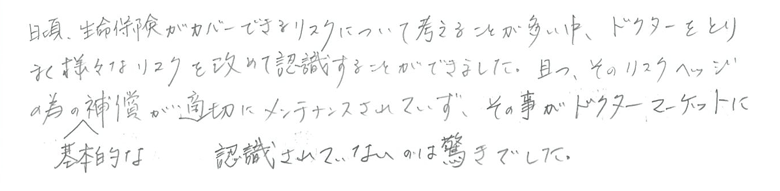 日頃、生命保険がカバーできるリスクについて考えることが多い中、ドクターをとり
まく様々なリスクを改めて認識することができました。且つ、そのリスクヘッジ
の為の補償が適切にメンテナンスされていず、その事がドクターマーケットに
基本的な 認識されていないのは驚きでした。